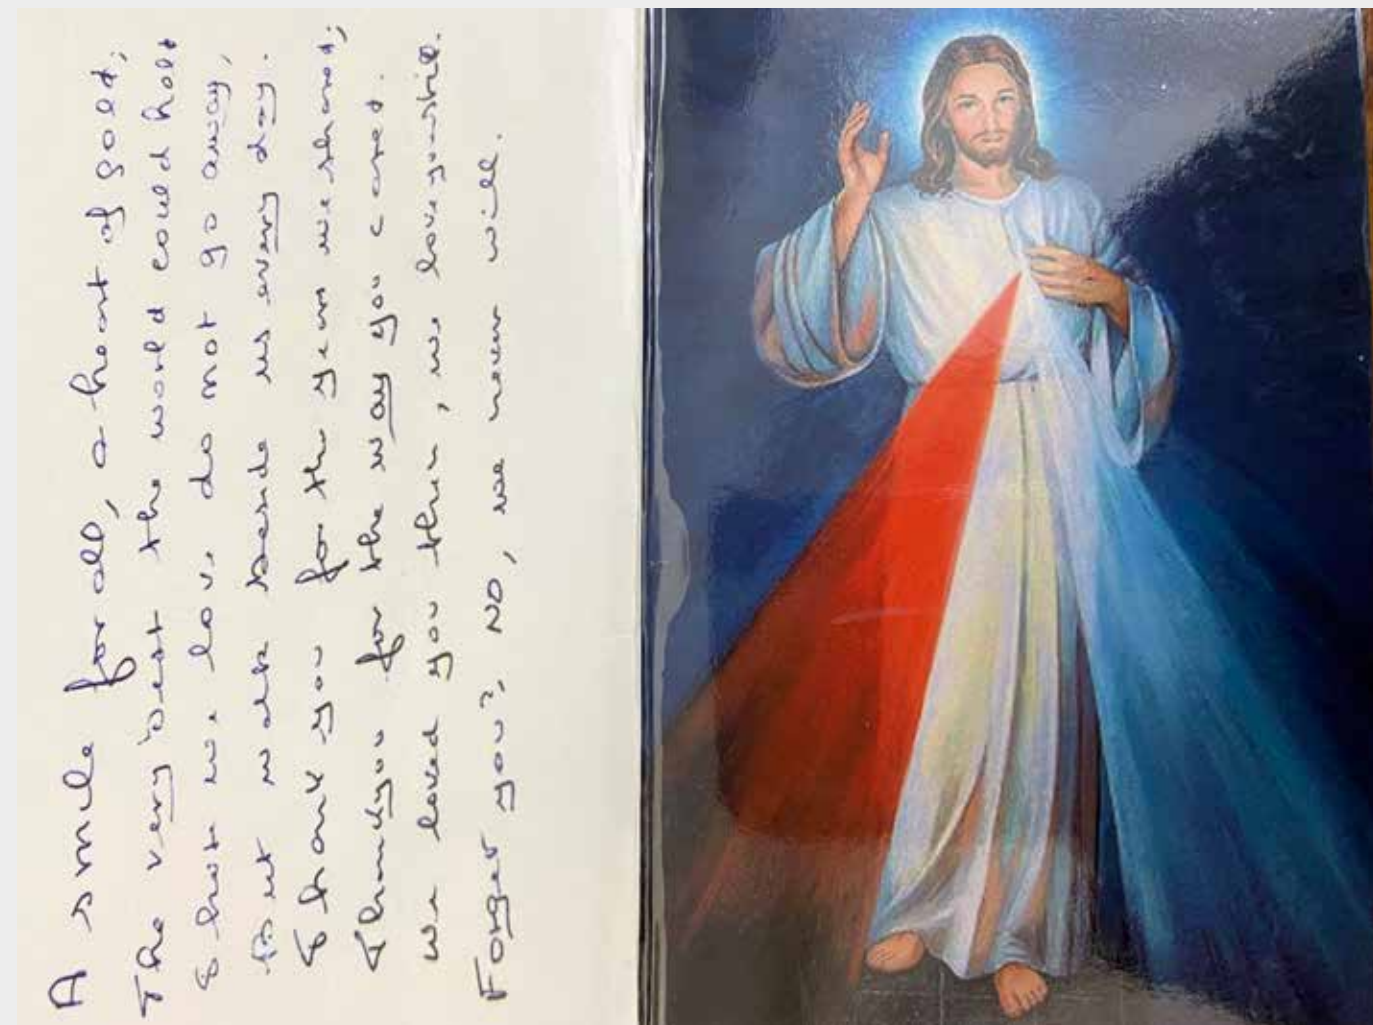 A smile for all, a heart of gold,
The very best the world could hold
Those we love do not go away,
But walk beside us every day.
Thank you for the years we shared,
Thank you for the way you cared.
We loved you then, we love you still.
Forget you?, NO, we never will.